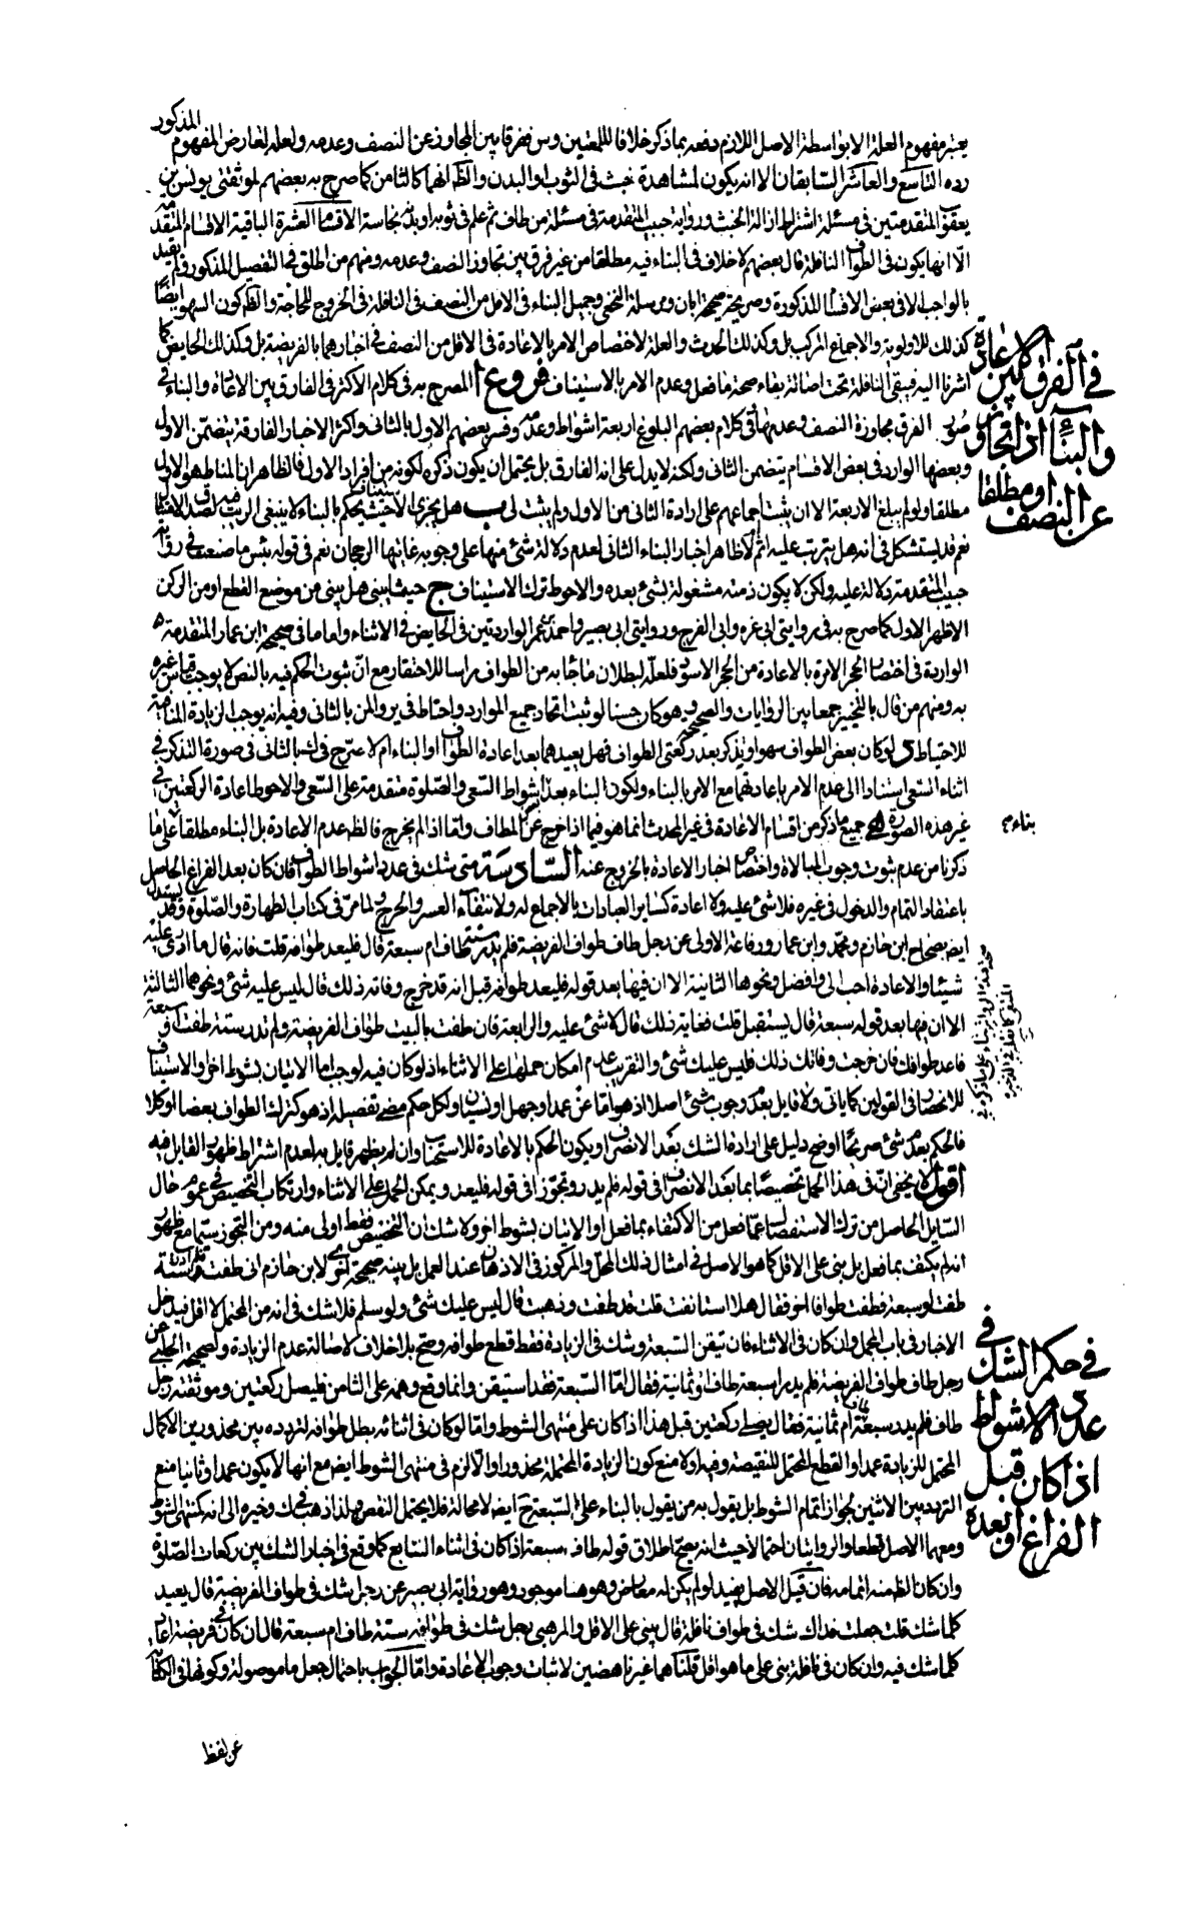 المذكور
يعتبر مفهوم العلة الا بواسطة الاصل اللازم دفعه بما ذكر خلافا للمعتبر وس ففرقا بين المجاوز عن النصف وعدمه ولعله لتعارض المفهوم
رده التاسع والعاشر السابقان الا انه يكون لمشاهدة خبث في الثوب او البدن والظ انهما كالثامن كما صرح به بعضهم لموثقتي يونس بن
يعقوب المتقدمتين في مسئلة اشتراط ازالة الخبث ورواية حبيب المتقدمة في مسئلة من طاف ثم علم في ثوبه او بدنه نجاسة الاقسام العشرة الباقية الاقسام المتقدمة
الا انها يكون في الطواف النافلة قال بعضهم لا خلاف في البناء فيه مطلقا من غير فرق بين تجاوز النصف وعدمه ومنهم من اطلق في التفصيل المذكور ولم يقيد
بالواجب الا في بعض الاقسام المذكورة وصريحة صحيحة ابان ومرسلة النخعي وجميل البناء في الاقل من النصف في النافلة في الخروج للحاجة والظ كون السهو ايضا
كذلك للاولوية والاجماع المركب بل وكذلك الحدث والعلة لاختصاص الامر بالاعادة في الاقل من النصف في اخبارهما بالفريضة بل وكذلك الحايض كما
اشرنا اليه فيبقى النافلة تحت اصالة بقاء صحة ما فعل وعدم الامر بالاستيناف فروع ا المصرح به في كلام الاكثر في الفارق بين الاعادة والبناء في
صور الفرق مجاوزة النصف وعدمها وفي كلام بعضهم البلوغ اربعة اشواط وعدمه وفسر بعضهم الاول بالثاني واكثر الاخبار الفارقة يتضمن الاول
وبعضها الوارد في بعض الاقسام يتضمن الثاني ولكنه لا يدل على انه الفارق بل يحتمل ان يكون ذكره لكونه من افراد الاول فالظاهر ان المناط هو الاول
مطلقا ولو لم يبلغ الاربعة الا ان يثبت اجماعهم على ارادة الثاني من الاول ولم يثبت لي ب هل يجزي الاستيناف حيث يحكم بالبناء لا ينبغي الريب فيه لصدق الامتثال
نعم قد يستشكل في انه هل يترتب عليه اثم لا ظاهر اخبار البناء الثاني لعدم دلالة شئ منها على وجوبه غايتها الرجحان نعم في قوله بئس ما صنعت في رواية
حبيب المتقدمة دلالة عليه ولكن لا يكون ذمته مشغولة بشئ بعده والاحوط ترك الاستيناف ج حيث يبني هل يبني من موضع القطع او من الركن
الاظهر الاول كما صرح به في روايتي ابي غره وابي الفرج وروايتي ابي بصير واحمد بن عمر الواردتين في الحايض في الاثناء واما ما في صحيحة ابن عمار المتقدمة
الواردة في اختصار الحجر الامرة بالاعادة من الحجر الاسود فلعله لبطلان ما جاء به من الطواف مراسا للاحتقار مع ان ثبوت الحكم فيه بالنص لا يوجب قياس غيره
به ومنهم من قال بالتخيير جمعا بين الروايات والصحيحة وهو كان حسنا لو ثبت اتحاد جميع الموارد واحتاط في ير والمن بالثاني وفيه انه يوجب الزيادة المنافية
للاحتياط د لو كان بعض الطواف سهوا ويذكر بعد ركعتي الطواف فهل يعيدهما بعد اعادة الطواف او البناء ام لا صرح في ك بالثاني في صورة التذكر في
اثناء السعي استنادا الى عدم الامر باعادتهما مع الامر بالبناء ولكون البناء بعد اشواط السعي والصلوة متقدمة على السعي والاحوط اعادة الركعتين في
غير هذه الصورة ه جميع ما ذكر من اقسام الاعادة في غير المحدث انما هو فيما اذا خرج عن المطاف واما اذا لم يخرج فالظ عدم الاعادة بل البناء مطلقا على ما
ذكرنا من عدم ثبوت وجوب الموالاة واختصاص اخبار الاعادة بالخروج عنه السادسة متى شك في عدد اشواط الطواف فان كان بعد الفراغ الحاصل
باعتقاد التمام والدخول في غيره فلا شئ عليه ولا اعادة كساير العبادات بالاجماع له ولانتفاء العسر والحرج ولما مر في كتاب الطهارة والصلوة وقد يستدل
ايض بصحاح ابن حازم ومحمد وابن عمار ورفاعة الاولى عن رجل طاف طواف الفريضة فلم يدر ستة طاف ام سبعة قال فليعد طوافه قلت ففاته قال ما ارى عليه
شيئا والاعادة احب الي وافضل ونحوها الثانية الا ان فيها بعد قوله فليعد طوافه قبل انه قد خرج وفاته ذلك قال ليس عليه شئ ونحوهما الثالثة
الا ان فيها بعد قوله سبعة قال يستقبل قلت ففاته ذلك قال لا شئ عليه والرابعة فان طفت بالبيت طواف الفريضة ولم تدر ستة طفت او سبعة
فاعد طوافك فان خرجت وفاتك ذلك فليس عليك شئ والتقريب عدم امكان حملها على الاثناء اذ لو كان فيه لوجب اما الاتيان بشوط اخر او الاستيناف
للانحصار في القولين كما ياتي ولا قايل بعدم وجوب شئ اصلا اذ هو اما عن عمد او جهل او نسيان ولكل حكم مضى تفصيله اذ هو كترك الطواف بعضا او كلا
فالحكم بعدم شئ صريحا اوضح دليل على ارادة الشك بعد الانصراف ويكون الحكم بالاعادة للاستحباب وان لم يظهر قايل به لعدم اشتراط ظهور القايل فيه
اقول لا يخفى ان في هذا الحمل تخصيصا بما بعد الانصراف في قوله فلم يدر وتجوزا في قوله فليعد ويمكن الحمل على الاثناء وارتكاب التخصيص في عموم حال
السايل الحاصل من ترك الاستفصال عما فعل من الاكتفاء بما فعل او الاتيان بشوط اخر ولا شك ان التخصيص فقط اولى منه ومن التجوز سيما مع ظهور
انه لم يكتف بما فعل بل بنى على الاقل كما هو الاصل في امثال ذلك المحل والمركوز في الاذهان عند العمل بل يبينه صحيحة اخرى لابن حازم اني طفت فلم ادر استة
طفت او سبعة فطفت طوافا اخر فقال هلا استانفت قلت قد طفت وذهبت قال ليس عليك شئ ولو سلم فلا شك في انه من المحتمل لا اقل فيدخل
الاخبار في باب المجمل وان كان في الاثناء فان تيقن السبعة وشك في الزيادة فقط قطع طوافه وصح بلا خلاف لاصالة عدم الزيادة ولصحيحة الحلبي عن
رجل طاف طواف الفريضة فلم يدر اسبعة طاف او ثمانية فقال اما السبعة فقد استيقن وانما وقع وهمه على الثامن فليصل ركعتين وموثقته رجل
طاف فلم يدر سبعة طاف ام ثمانية فقال يصلي ركعتين قبل هذا اذا كان على منتهى الشوط واما لو كان في اثنائه بطل طوافه لتردده بين محذورين الاكمال
المحتمل للزيادة عمدا والقطع المحتمل للنقيصة وفيه اولا منع كون الزيادة المحتملة محذورا والا لزم في منتهى الشوط ايض مع انها لا يكون عمدا وثانيا منع
التردد بين الاثنين لجواز اتمام الشوط بل يقول به من يقول بالبناء على السبعة ح ايض لا محالة فلا يحتمل النقص ولذا ذهب في ك وخيره الى انه كمنتهى الشوط
ومعهما الاصل قطعا والروايتان احتمالا حيث انه يصح اطلاق قوله طاف سبعة اذا كان في اثناء السابع كما وقع في اخبار الشك بين ركعات الصلوة
وان كان الظ منه اتمامه فان قيل الاصل يفيد لو لم يكن له معارض وهو هنا موجود وهو رواية ابي بصير عن رجل شك في طواف الفريضة قال يعيد
كلما شك قلت جعلت فداك شك في طواف نافلة قال يبني على الاقل والمرهبي رجل شك في طوافه ستة طاف ام سبعة قال ان كان في فريضة اعاد
كلما شك فيه وان كان في نافلة بنى على ما هو اقل قلنا هما غير ناهضين لاثبات وجوب الاعادة واما الجواب باحتمال جعل ما موصولة وكونها في الكتابة
عن لفظ
في الفرق بين الاعادة
والبناء اذا تجاوز
عن النصف او مطلقا
بناء م
في حكم الشك في
عدد الاشواط
اذا كان قبل
الفراغ او بعده